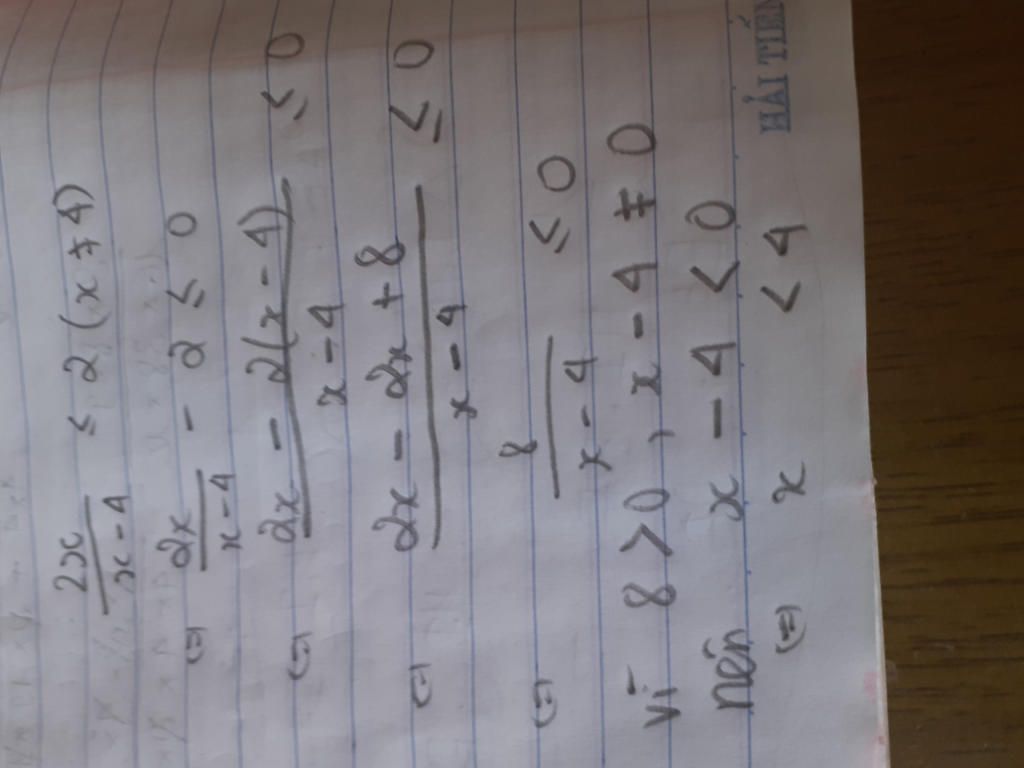 2x/(x-4) ≤ 2 (x ≠ 4)
(=) 2x/(x-4) - 2 ≤ 0
(=) (2x - 2(x-4))/(x-4) ≤ 0
(=) (2x - 2x + 8)/(x-4) ≤ 0
(=) 8/(x-4) ≤ 0
vì 8 > 0, x - 4 ≠ 0
nên x - 4 < 0
(=) x < 4
HẢI TIẾN